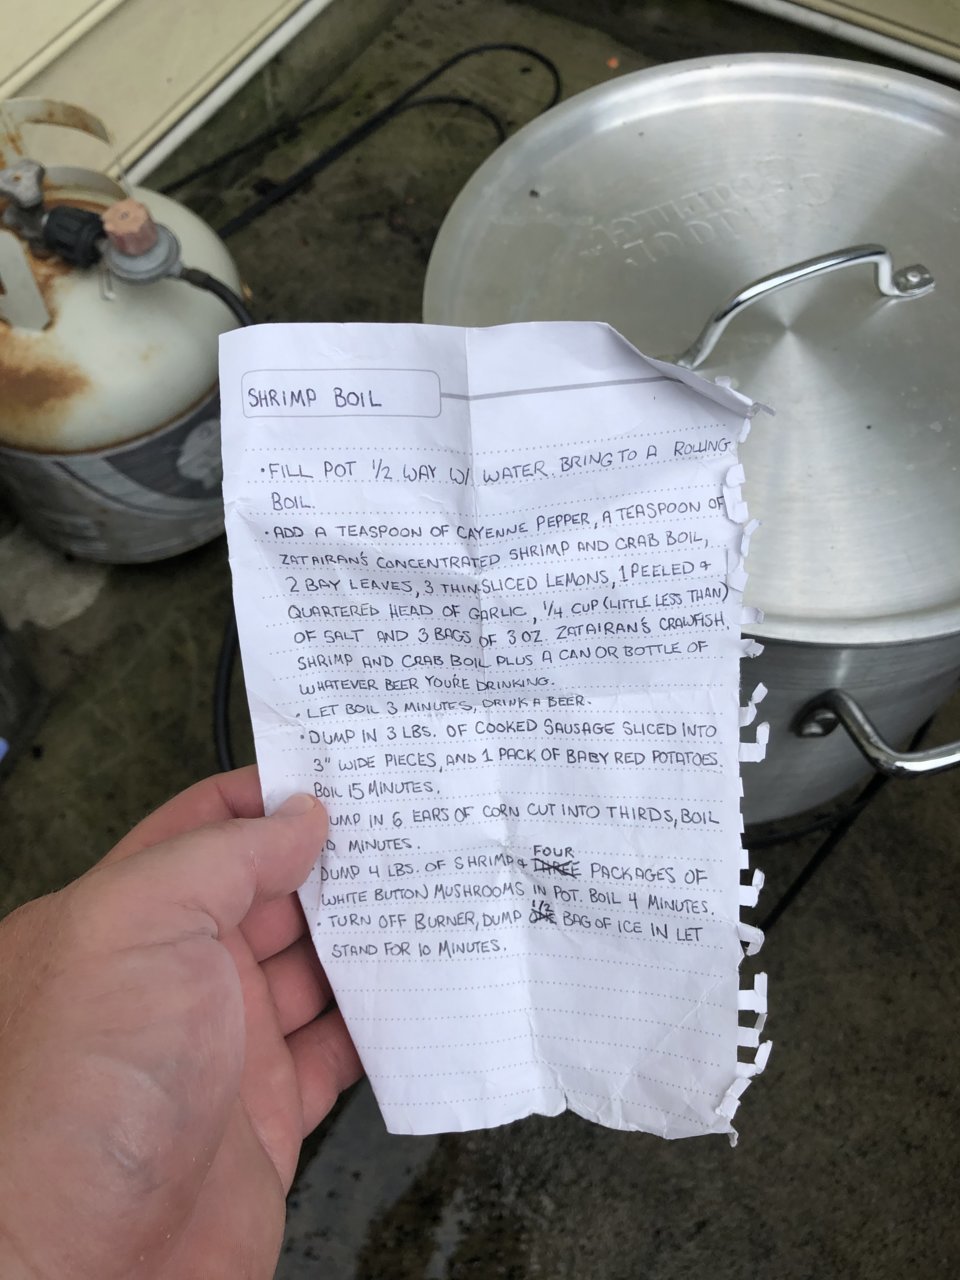 SHRIMP BOIL
• FILL POT 1/2 WAY W/ WATER. BRING TO A ROLLING
BOIL.
• ADD A TEASPOON OF CAYENNE PEPPER, A TEASPOON OF
ZATAIRAN'S CONCENTRATED SHRIMP AND CRAB BOIL,
2 BAY LEAVES, 3 THIN SLICED LEMONS, 1 PEELED &
QUARTERED HEAD OF GARLIC, 1/4 CUP (LITTLE LESS THAN)
OF SALT AND 3 BAGS OF 3 OZ. ZATAIRAN'S CRAWFISH,
SHRIMP AND CRAB BOIL PLUS A CAN OR BOTTLE OF
WHATEVER BEER YOU'RE DRINKING.
• LET BOIL 3 MINUTES, DRINK A BEER.
• DUMP IN 3 LBS. OF COOKED SAUSAGE SLICED INTO
3" WIDE PIECES, AND 1 PACK OF BABY RED POTATOES.
BOIL 15 MINUTES.
UMP IN 6 EARS OF CORN CUT INTO THIRDS, BOIL
0 MINUTES.
FOUR
• DUMP 4 LBS. OF SHRIMP & THREE PACKAGES OF
WHITE BUTTON MUSHROOMS IN POT. BOIL 4 MINUTES.
1/2
• TURN OFF BURNER, DUMP ONE BAG OF ICE IN LET
STAND FOR 10 MINUTES.